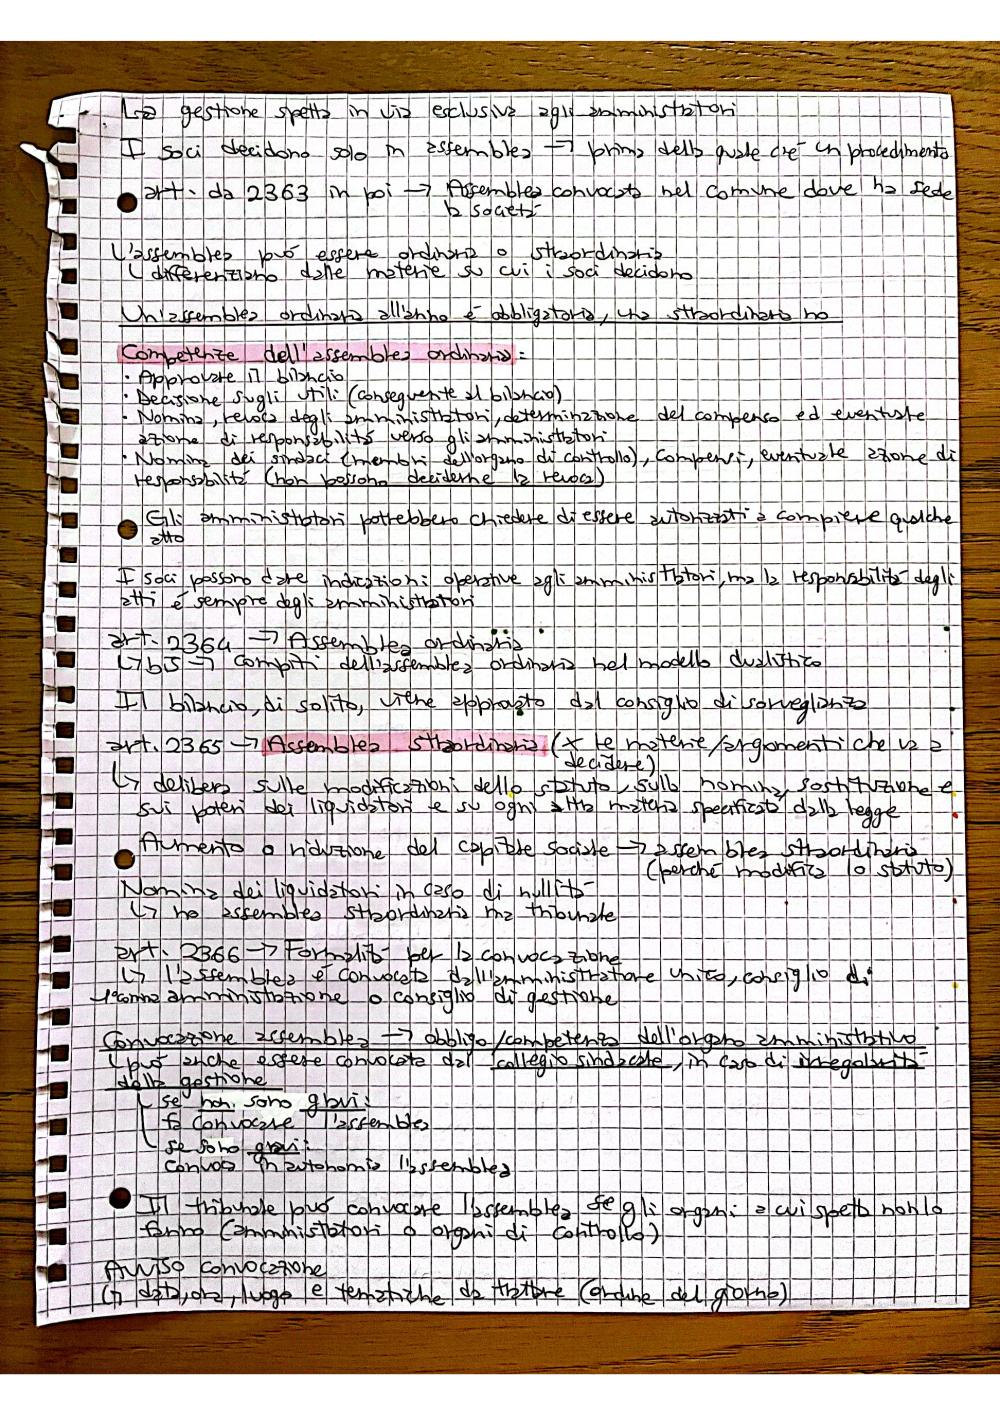 La gestione spetta in via esclusiva agli amministratori
I soci decidono solo in assemblea → prima della quale c'è un procedimento
art. da 2363 in poi → Assemblea convocata nel comune dove ha sede
la società
L'assemblea può essere ordinaria o straordinaria
↳ differenziano dalle materie su cui i soci decidono
Un'assemblea ordinaria all'anno è obbligatoria, una straordinaria no
Competenze dell'assemblea ordinaria:
· Approvare il bilancio
· Decisione sugli utili (conseguente al bilancio)
· Nomina, revoca degli amministratori, determinazione del compenso ed eventuale
azione di responsabilità verso gli amministratori
· Nomina dei sindaci (membri dell'organo di controllo), compensi, eventuale azione di
responsabilità (non possono deciderne la revoca)
Gli amministratori potrebbero chiedere di essere autorizzati a compiere qualche
atto
I soci possono dare indicazioni operative agli amministratori, ma la responsabilità degli
atti è sempre degli amministratori
art. 2364 → Assemblea ordinaria
↳ bis → compiti dell'assemblea ordinaria nel modello dualistico
Il bilancio, di solito, viene approvato dal consiglio di sorveglianza
art. 2365 → Assemblea straordinaria (x le materie/argomenti che va a
decidere)
↳ delibera sulle modificazioni dello statuto, sulla nomina, sostituzione e
sui poteri dei liquidatori e su ogni altra materia specificata dalla legge
Aumento o riduzione del capitale sociale → assemblea straordinaria
(perché modifica lo statuto)
Nomina dei liquidatori in caso di nullità
↳ no assemblea straordinaria ma tribunale
art. 2366 → Formalità per la convocazione
↳ l'assemblea è convocata dall'amministratore unico, consiglio di
1° comma amministrazione o consiglio di gestione
Convocazione assemblea → obbligo/competenza dell'organo amministrativo
↳ può anche essere convocata dal collegio sindacale, in caso di irregolarità
della gestione
se non sono gravi:
fa convocare l'assemblea
se sono gravi:
convoca in autonomia l'assemblea
Il tribunale può convocare l'assemblea se gli organi a cui spetta non lo
fanno (amministratori o organi di controllo)
Avviso convocazione
↳ data, ora, luogo e tematiche da trattare (ordine del giorno)